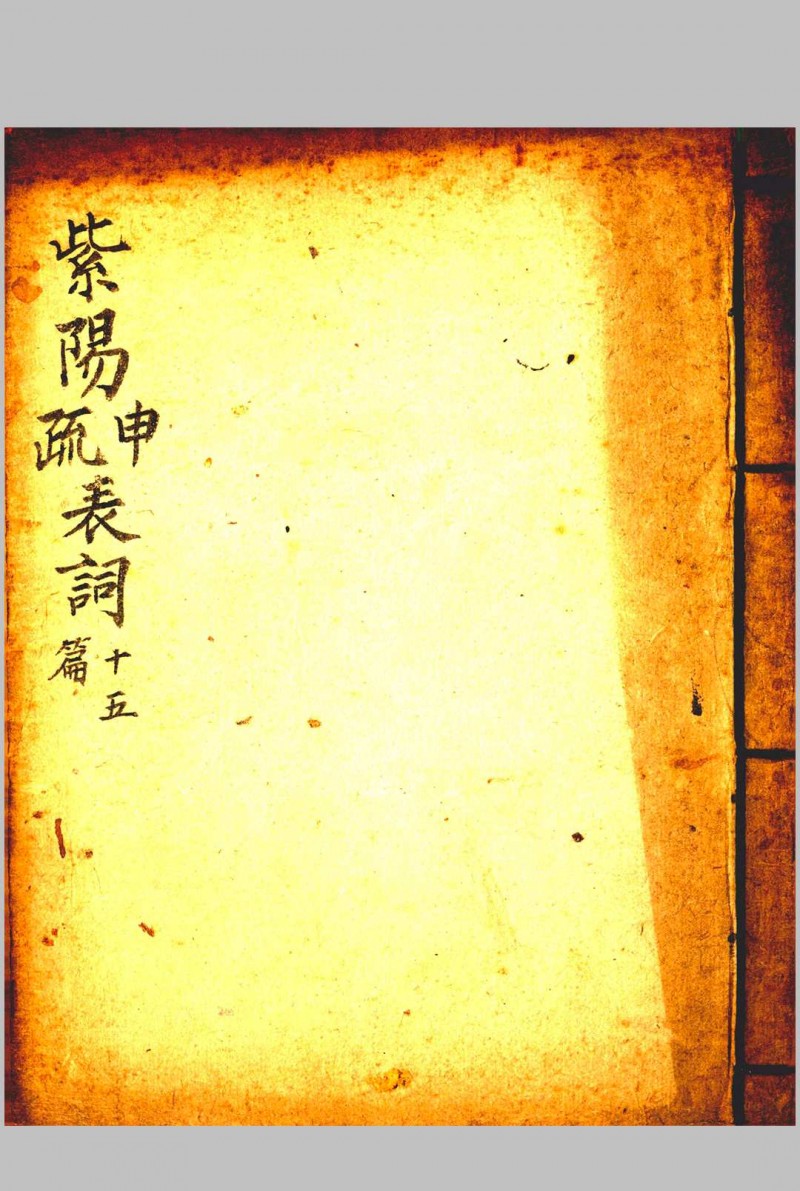 紫陽申疏表詞十五篇